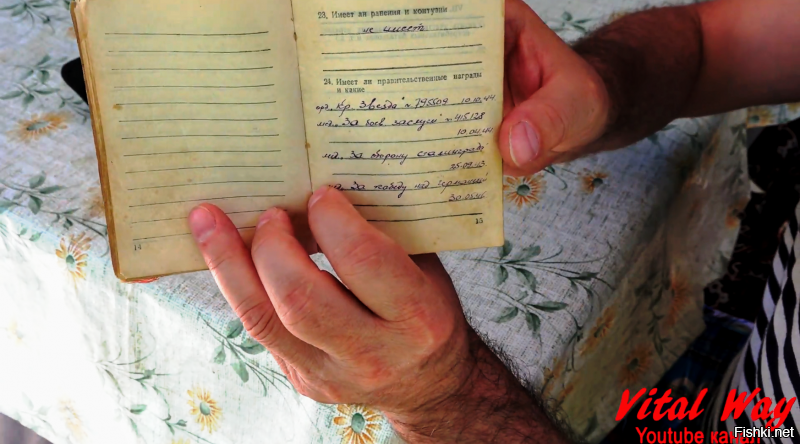 23. Имеет ли ранения и контузии
не имеет
24. Имеет ли правительственные награды
и какие
ор. „Кр. Звезда" № 795509 10.10.44
мд. „За боев. заслуги" № 415128
10.04.44
мд. „За оборону Сталинграда"
25.09.43
За победу над Германией"
30.05.46
14
15
Vital Way
Youtube канал
Fishki.net